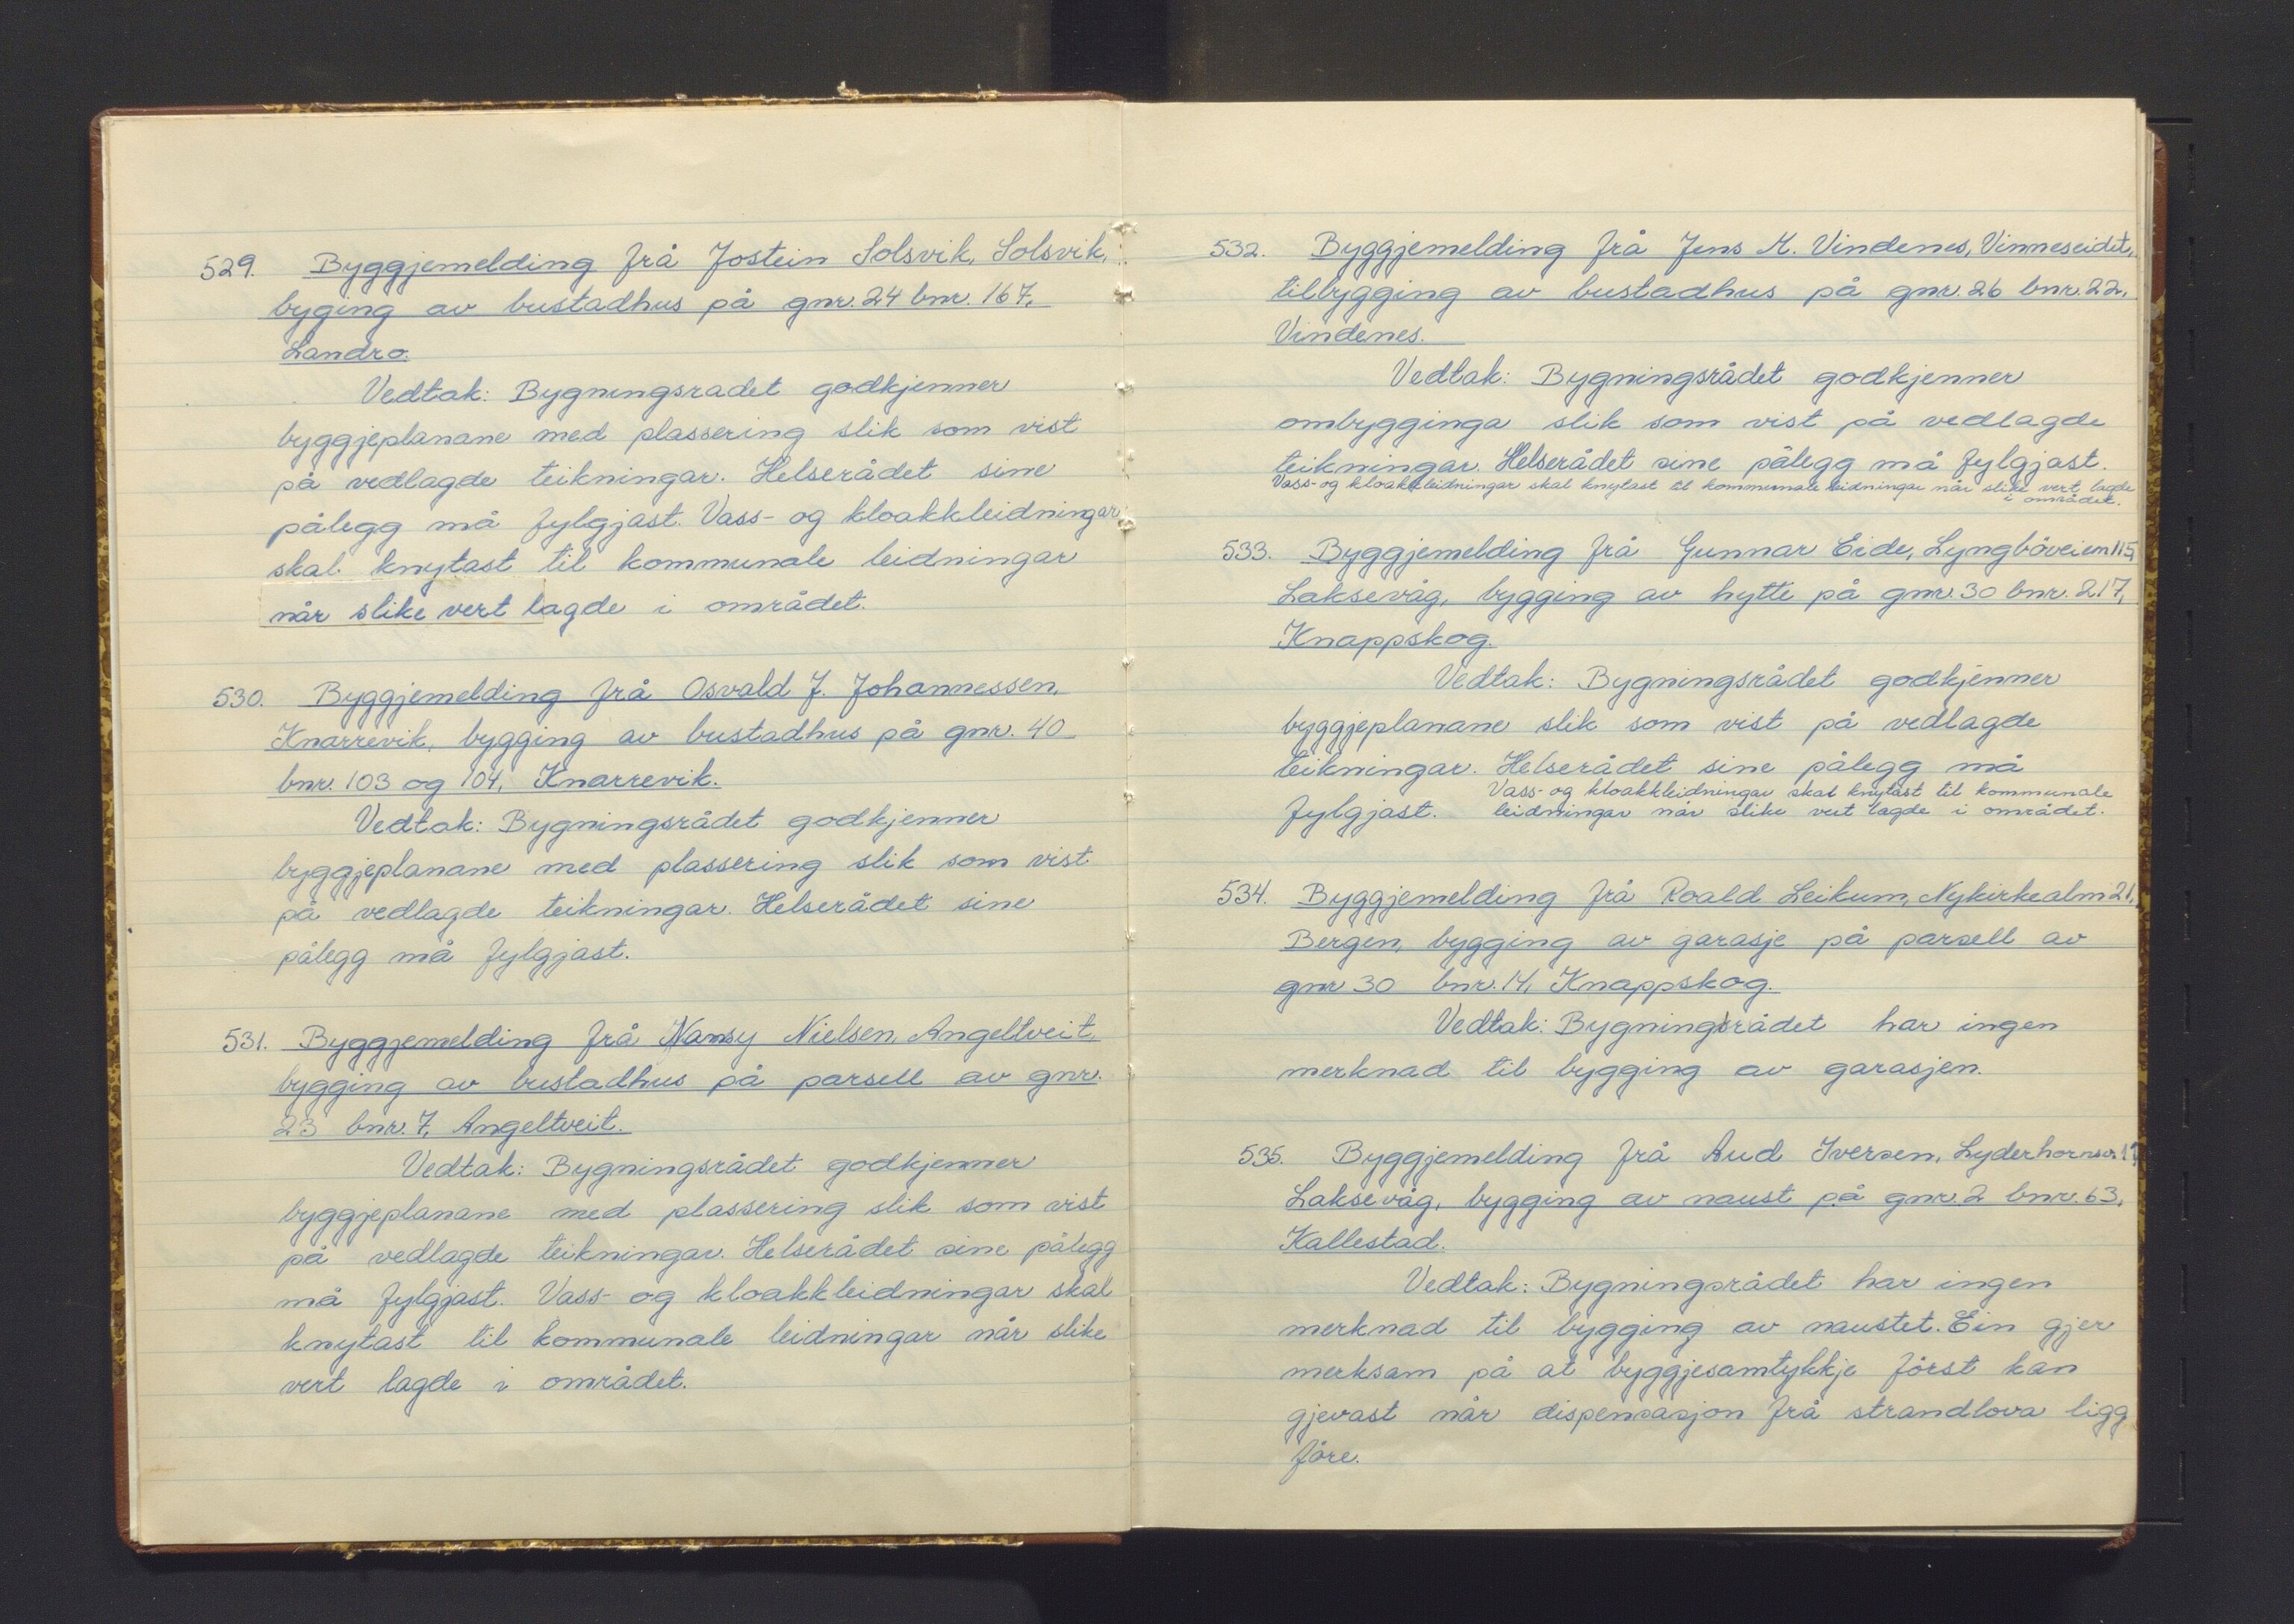 529. Byggjemelding frå Jostein Solsvik, Solsvik,
byging av bustadhus på gnr. 24 bnr. 167,
Landro.
Vedtak: Bygningsradet godkjenner
byggjeplanane med plassering slik som vist
på vedlagde teikningar. Helserådet sine
pålegg må fylgjast. Vass- og kloakkleidningar
skal knytast til kommunale leidningar
når slike vert lagde i området.
530. Byggjemelding frå Osvald J. Johannessen,
Knarrevik, bygging av bustadhus på gnr. 40
bnr. 103 og 104, Knarrevik.
Vedtak: Bygningsrådet godkjenner
byggjeplanane med plassering slik som vist
på vedlagde teikningar. Helserådet sine
pålegg må fylgjast.
531. Byggjemelding frå Nansy Nielsen, Angeltveit,
bygging av bustadhus på parsell av gnr.
23 bnr. 7, Angeltveit.
Vedtak: Bygningsrådet godkjenner
byggjeplanane med plassering slik som vist
på vedlagde teikningar. Helserådet sine pålegg
må fylgjast. Vass- og kloakkleidningar skal
knytast til kommunale leidningar når slike
vert lagde i området.
532. Byggjemelding frå Jens M. Vindenes, Vinneseidet,
tilbygging av bustadhus på gnr. 26 bnr. 22,
Vindenes.
Vedtak: Bygningsrådet godkjenner
ombygginga slik som vist på vedlagde
teikningar. Helserådet sine pålegg må fylgjast.
Vass- og kloakkleidningar skal knytast til kommunale leidningar når slike vert lagde
i området.
533. Byggjemelding frå Gunnar Eide, Lyngbøveien 115,
Laksevåg, bygging av hytte på gnr. 30 bnr. 217,
Knappskog.
Vedtak: Bygningsrådet godkjenner
byggjeplanane slik som vist på vedlagde
teikningar. Helserådet sine pålegg må
fylgjast. Vass- og kloakkleidningar skal knytast til kommunale
leidningar når slike vert lagde i området.
534. Byggjemelding frå Roald Leikum, Nykirkealm 21,
Bergen, bygging av garasje på parsell av
gnr 30 bnr. 14, Knappskog.
Vedtak: Bygningsrådet har ingen
merknad til bygging av garasjen.
535. Byggjemelding frå Aud Iversen, Lyderhornsv.
Laksevåg, bygging av naust på gnr. 2 bnr. 63,
Kallestad.
Vedtak: Bygningsrådet har ingen
merknad til bygging av naustet. Ein gjer
merksam på at byggjesamtykkje först kan
gjevast når dispensasjon frå strandlova ligg
före.